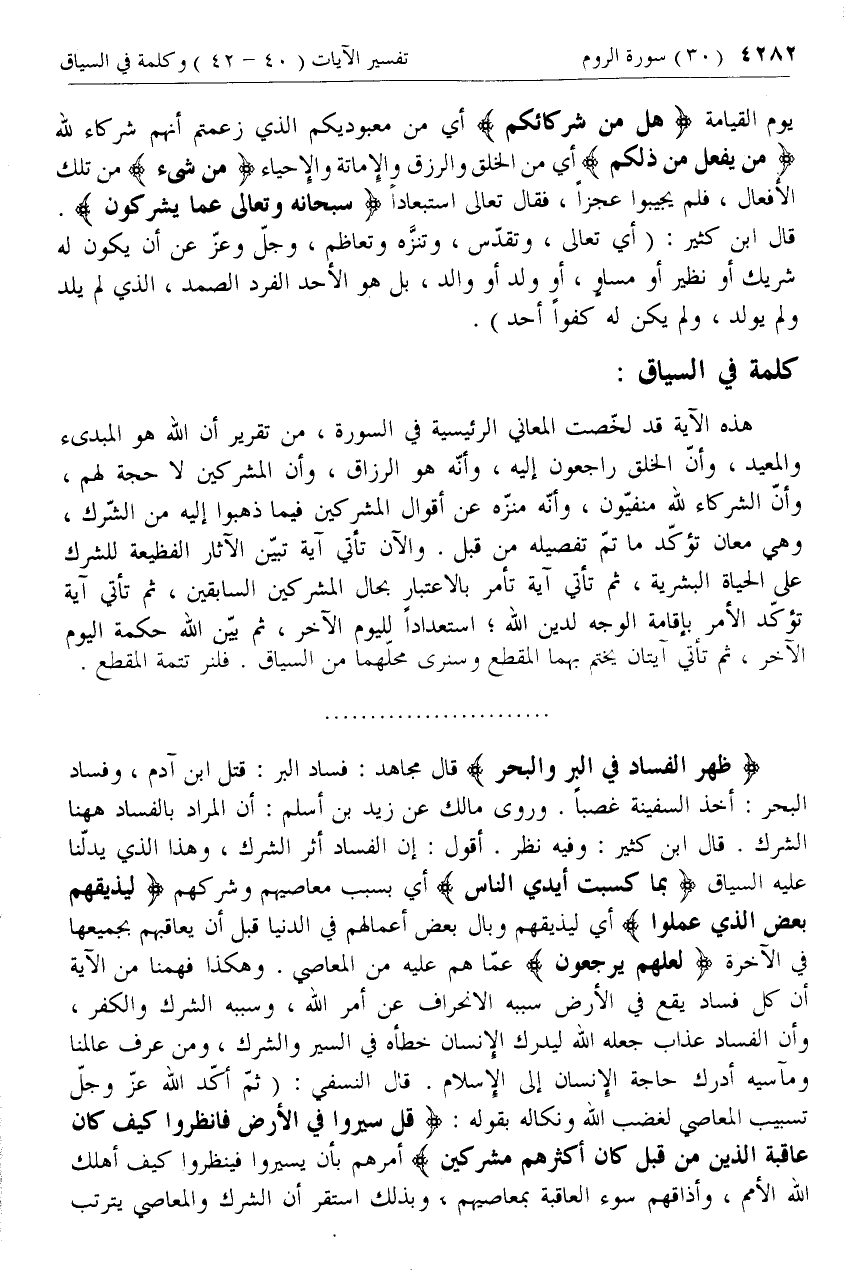 ٤٢٨٢ (٣٠) سورة الروم تفسير الآيات (٤٠ – ٤٢) وكلمة في السياق
يوم القيامة ﴿ هل من شركائكم ﴾ أي من معبوديكم الذي زعمتم أنهم شركاء لله
﴿ من يفعل من ذلكم ﴾ أي من الخلق والرزق والإماتة والإحياء ﴿ من شيء ﴾ من تلك
الأفعال ، فلم يجيبوا عجزاً ، فقال تعالى استبعاداً ﴿ سبحانه وتعالى عما يشركون ﴾ .
قال ابن كثير : ( أي تعالى ، وتقدّس ، وتنزَّه وتعاظم ، وجلّ وعزّ عن أن يكون له
شريك أو نظير أو مساوٍ ، أو ولد أو والد ، بل هو الأحد الفرد الصمد ، الذي لم يلد
ولم يولد ، ولم يكن له كفواً أحد ) .
كلمة في السياق :
هذه الآية قد لخّصت المعاني الرئيسية في السورة ، من تقرير أن الله هو المبدىء
والمعيد ، وأنّ الخلق راجعون إليه ، وأنّه هو الرزاق ، وأن المشركين لا حجة لهم ،
وأنّ الشركاء لله منفيّون ، وأنّه منزّه عن أقوال المشركين فيما ذهبوا إليه من الشّرك ،
وهي معان تؤكّد ما تمّ تفصيله من قبل . والآن تأتي آية تبيّن الآثار الفظيعة للشرك
على الحياة البشرية ، ثم تأتي آية تأمر بالاعتبار بحال المشركين السابقين ، ثم تأتي آية
تؤكّد الأمر بإقامة الوجه لدين الله ؛ استعداداً لليوم الآخر ، ثم بيّن الله حكمة اليوم
الآخر ، ثم تأتي آيتان يختم بهما المقطع وسنرى محلّهما من السياق . فلنر تتمة المقطع .
.........................
﴿ ظهر الفساد في البر والبحر ﴾ قال مجاهد : فساد البر : قتل ابن آدم ، وفساد
البحر : أخذ السفينة غصباً . وروى مالك عن زيد بن أسلم : أن المراد بالفساد ههنا
الشرك . قال ابن كثير : وفيه نظر . أقول : إن الفساد أثر الشرك ، وهذا الذي يدلّنا
عليه السياق ﴿ بما كسبت أيدي الناس ﴾ أي بسبب معاصيهم وشركهم ﴿ ليذيقهم
بعض الذي عملوا ﴾ أي ليذيقهم وبال بعض أعمالهم في الدنيا قبل أن يعاقبهم بجميعها
في الآخرة ﴿ لعلهم يرجعون ﴾ عمّا هم عليه من المعاصي . وهكذا فهمنا من الآية
أن كل فساد يقع في الأرض سببه الانحراف عن أمر الله ، وسببه الشرك والكفر ،
وأن الفساد عذاب جعله الله ليدرك الإنسان خطأه في السير والشرك ، ومن عرف عالمنا
ومآسيه أدرك حاجة الإنسان إلى الإسلام . قال النسفي : ( ثمّ أكّد الله عزّ وجلّ
تسبيب المعاصي لغضب الله ونكاله بقوله : ﴿ قل سيروا في الأرض فانظروا كيف كان
عاقبة الذين من قبل كان أكثرهم مشركين ﴾ أمرهم بأن يسيروا فينظروا كيف أهلك
الله الأمم ، وأذاقهم سوء العاقبة بمعاصيهم ، وبذلك استقر أن الشرك والمعاصي يترتب